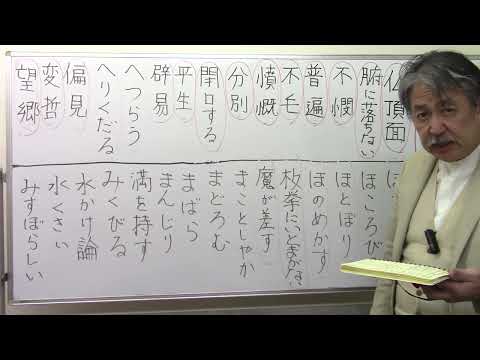 仏頂面
腑に落ちない
不憫
普遍
不毛
憤慨
分別
閉口する
平生
辟易
へつらう
へりくだる
偏見
変哲
望郷
ほころび
ほとぼり
ほのめかす
枚挙にいとまがない
魔が差す
まことしやか
まどろむ
まばら
まんじり
満を持す
みくびる
水かけ論
水くさい
みすぼらしい